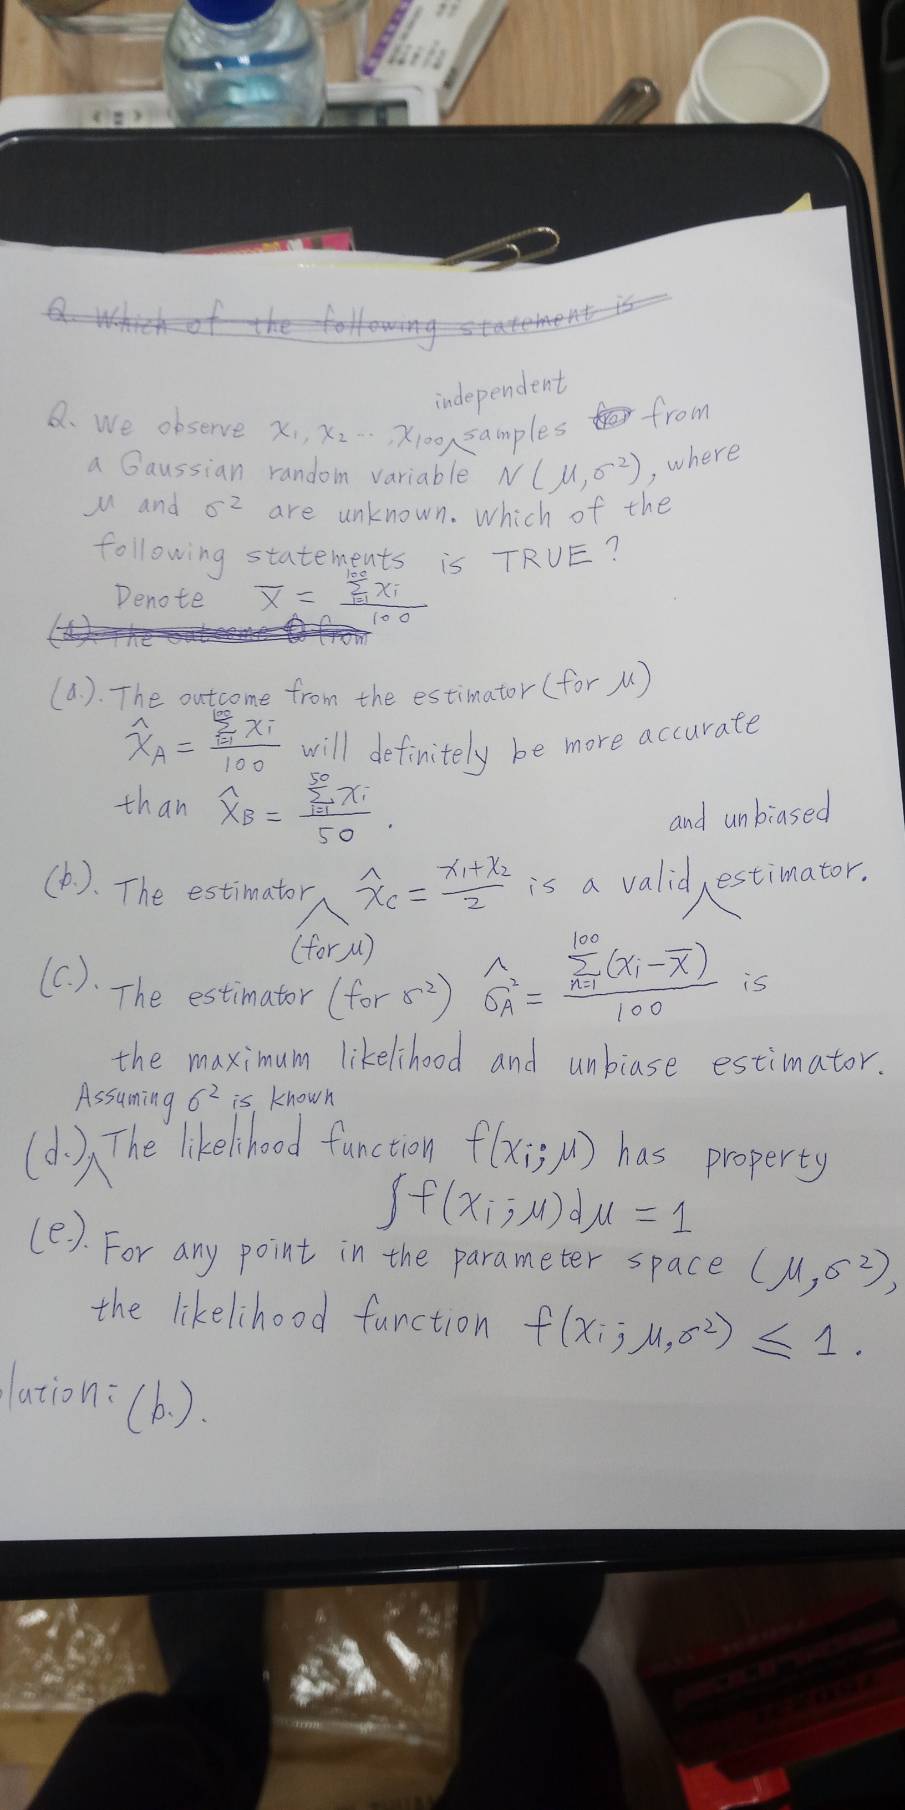 Q. Which of the following statement is
independent
Q. We observe x₁, x₂ ..., x₁₀₀ ^ samples from
a Gaussian random variable N(μ, σ²), where
μ and σ² are unknown. Which of the
following statements is TRUE?
Denote X̅ = Σ_{i=1}^{100} xᵢ / 100
(a). The outcome from
(a.). The outcome from the estimator (for μ)
X̂_A = Σ_{i=1}^{100} xᵢ / 100 will definitely be more accurate
than X̂_B = Σ_{i=1}^{50} xᵢ / 50 .
and unbiased
(b.). The estimator ^ X̂_C = (x₁+x₂)/2 is a valid ^ estimator.
(for μ)
(c.). The estimator (for σ²) σ̂_A² = Σ_{n=1}^{100} (xᵢ − X̅) / 100 is
the maximum likelihood and unbiase estimator.
Assuming σ² is known
(d.) ^ The likelihood function f(xᵢ; μ) has property
∫f(xᵢ; μ)dμ = 1
(e.). For any point in the parameter space (μ, σ²),
the likelihood function f(xᵢ; μ, σ²) ≤ 1.
lution: (b.).